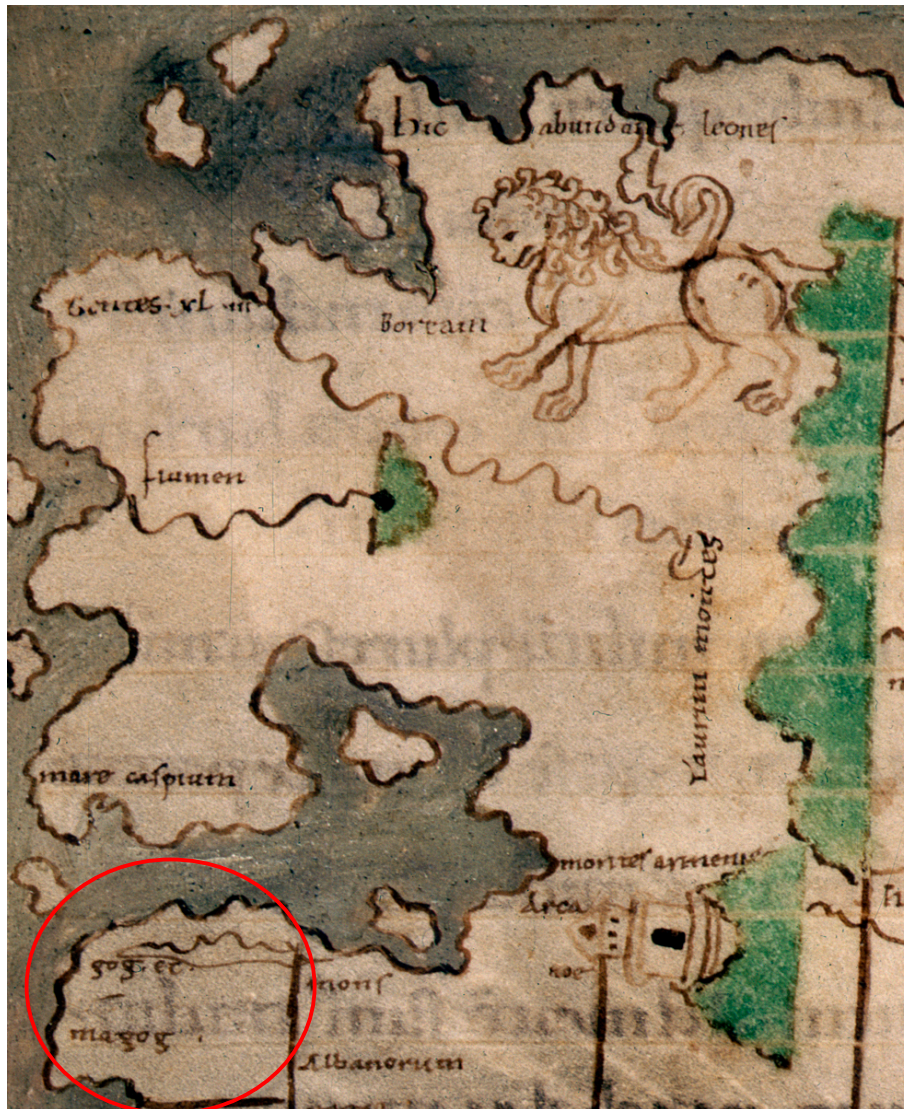 hic abundant leones
Gentes xl
Boream
flumen
taurini montes
mare caspium
montes armenie
Arca
noe
gog et
magog
mons
Albanorum